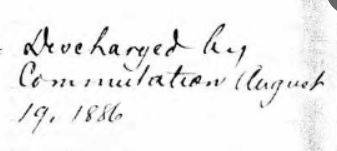 Discharged by
Commutation August
19, 1886